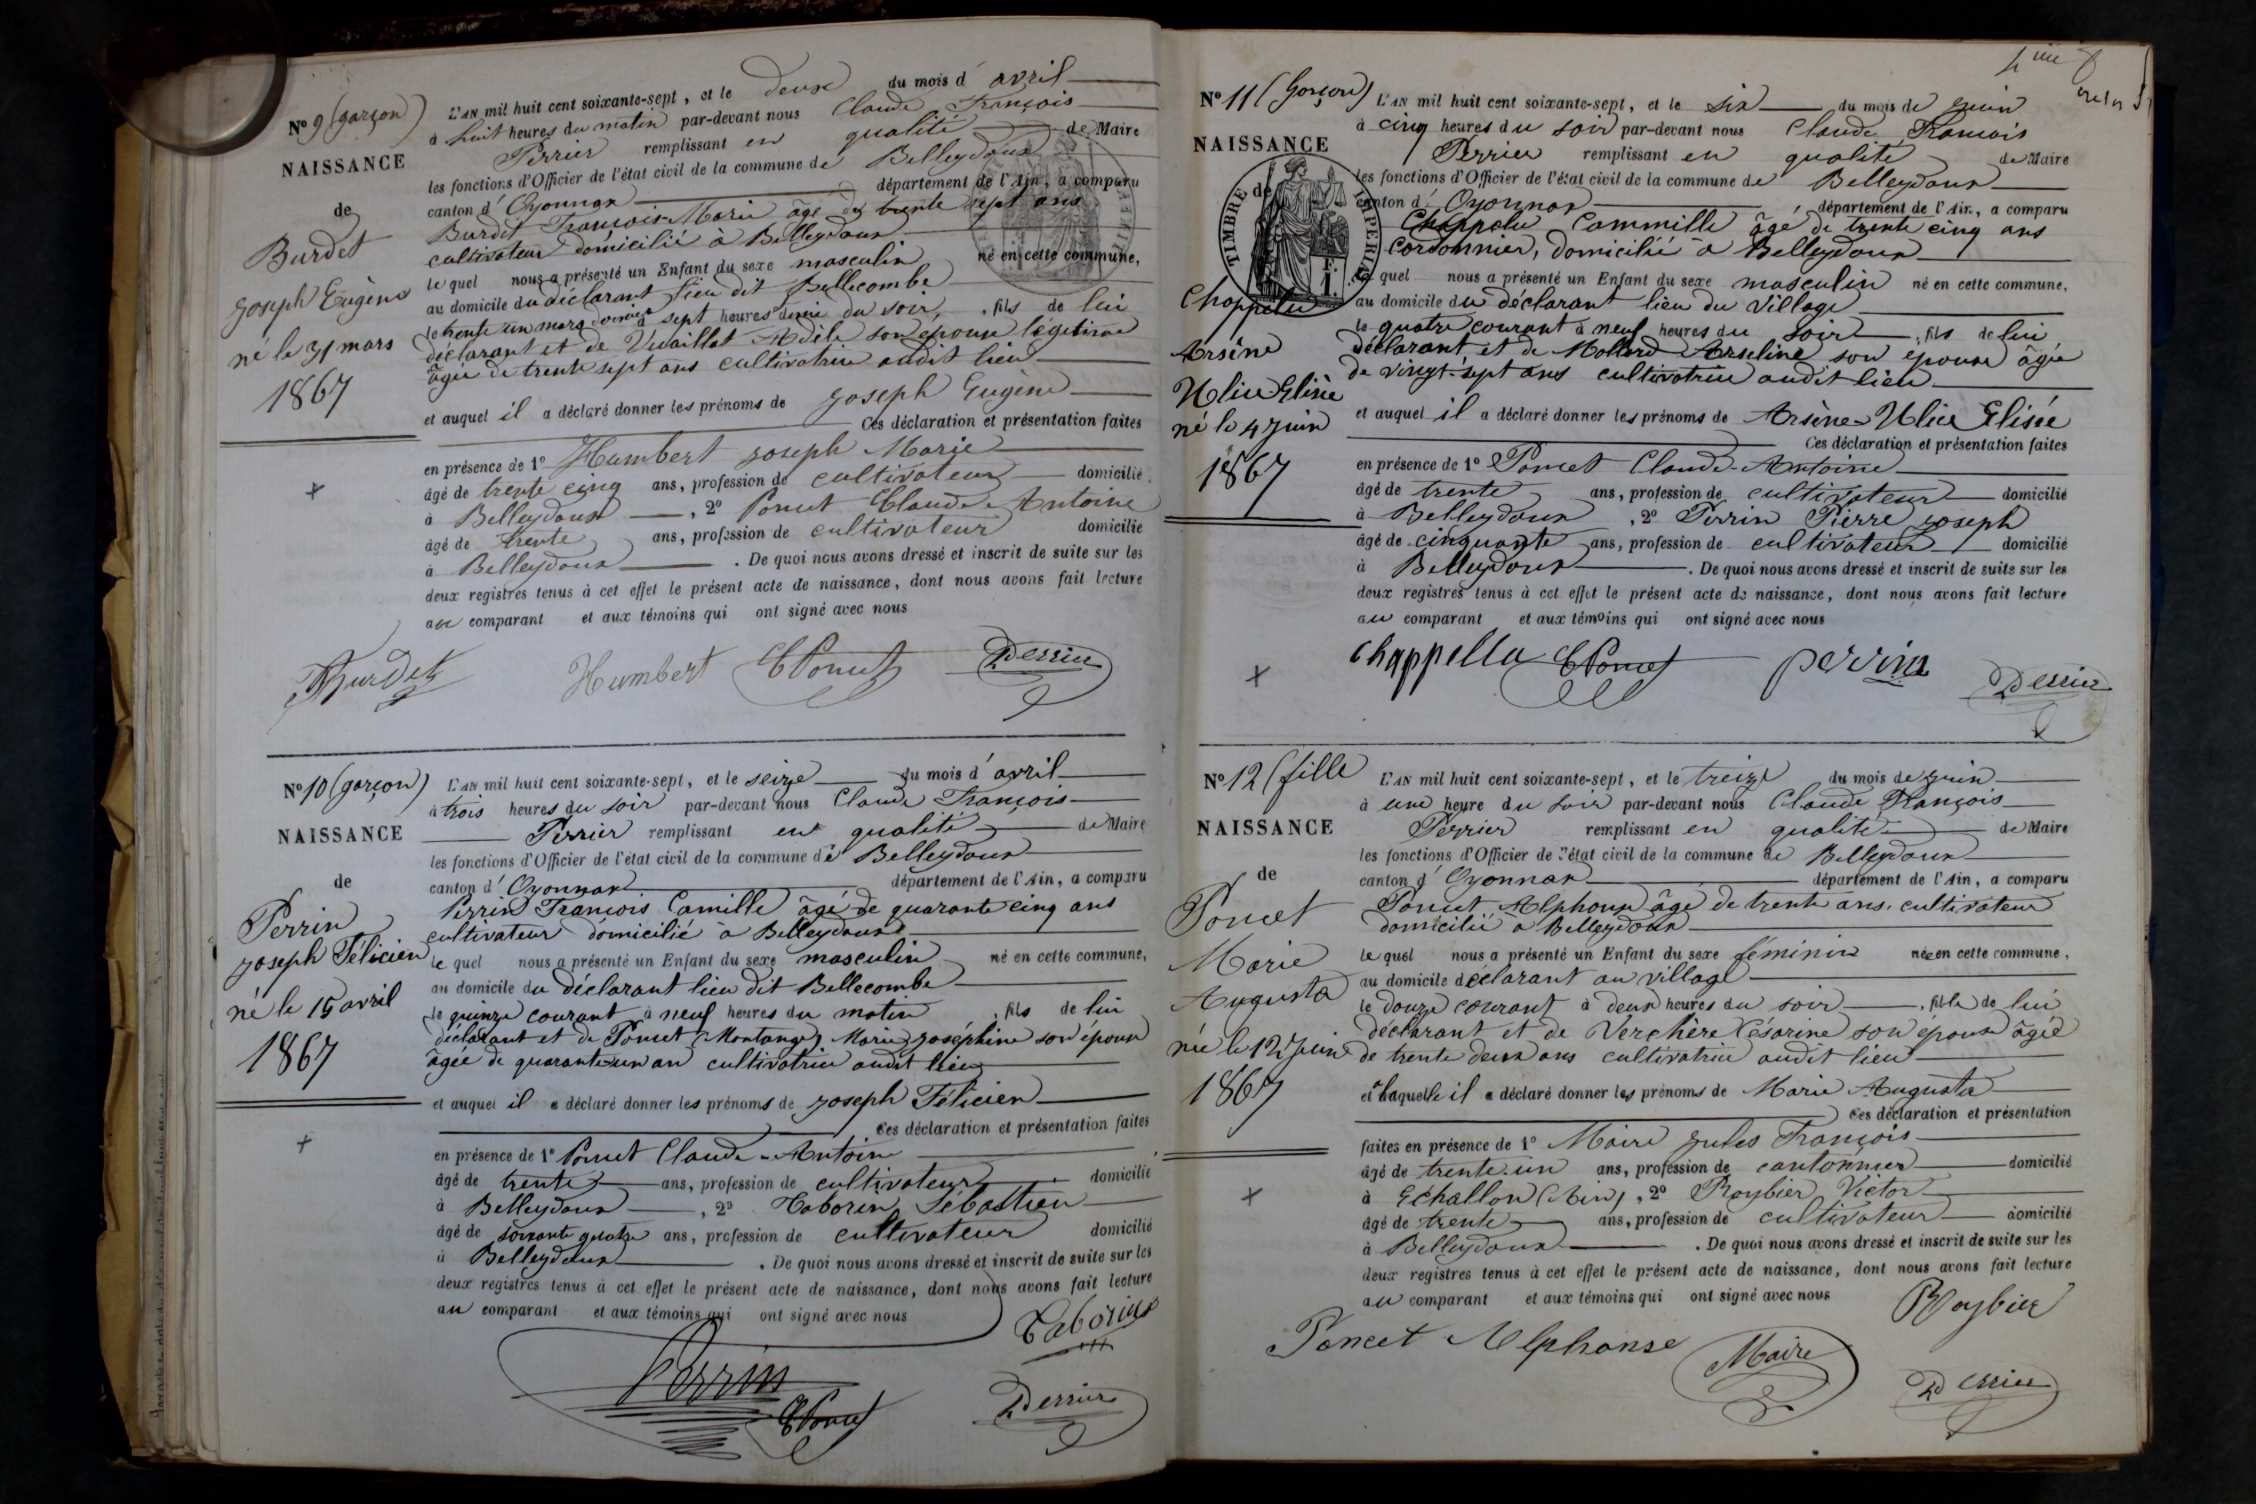 Nº 9 (garçon)
NAISSANCE
de
Burdet
Joseph Eugène
né le 31 mars
1867
L'AN mil huit cent soixante-sept, et le deux du mois d'avril
à huit heures du matin par-devant nous Claude François
Perrier remplissant en qualité de Maire
les fonctions d'Officier de l'état civil de la commune de Belleydoux
canton d'Oyonnax département de l'Ain, a comparu
Burdet François-Marie âgé de trente sept ans
cultivateur domicilié à Belleydoux
lequel nous a présenté un Enfant du sexe masculin né en cette commune,
au domicile du déclarant lieu dit Bellecombe
le trente un mars dernier à sept heures demie du soir, fils de lui
déclarant et de Vuaillat Adèle son épouse légitime
âgée de trente sept ans cultivatrice audit lieu
et auquel il a déclaré donner les prénoms de Joseph Eugène
Ces déclaration et présentation faites
en présence de 1º Humbert Joseph Marie
âgé de trente cinq ans, profession de cultivateur domicilié
à Belleydoux, 2º Poncet Claude-Antoine
âgé de trente ans, profession de cultivateur domicilié
à Belleydoux. De quoi nous avons dressé et inscrit de suite sur les
deux registres tenus à cet effet le présent acte de naissance, dont nous avons fait lecture
au comparant et aux témoins qui ont signé avec nous
Burdet Humbert C Poncet Perrier
Nº 10 (garçon)
NAISSANCE
de
Perrin
Joseph Félicien
né le 15 avril
1867
L'AN mil huit cent soixante-sept, et le seize du mois d'avril
à trois heures du soir par-devant nous Claude François
Perrier remplissant en qualité de Maire
les fonctions d'Officier de l'état civil de la commune de Belleydoux
canton d'Oyonnax département de l'Ain, a comparu
Perrin François Camille âgé de quarante cinq ans
cultivateur domicilié à Belleydoux
lequel nous a présenté un Enfant du sexe masculin né en cette commune,
au domicile du déclarant lieu dit Bellecombe
le quinze courant à neuf heures du matin, fils de lui
déclarant et de Poncet (Montange) Marie Joséphine son épouse
âgée de quarante-un an cultivatrice audit lieu
et auquel il a déclaré donner les prénoms de Joseph Félicien
Ces déclaration et présentation faites
en présence de 1º Poncet Claude-Antoine
âgé de trente ans, profession de cultivateur domicilié
à Belleydoux, 2º Taborin Sébastien
âgé de soixante quatre ans, profession de cultivateur domicilié
à Belleydoux. De quoi nous avons dressé et inscrit de suite sur les
deux registres tenus à cet effet le présent acte de naissance, dont nous avons fait lecture
au comparant et aux témoins qui ont signé avec nous
Taborin
Perrin C Poncet Perrier
Nº 11 (Garçon)
NAISSANCE
de
TIMBRE IMPERIAL
Chappelu
Arsène
Ulice Elisée
né le 4 Juin
1867
L'AN mil huit cent soixante-sept, et le six du mois de Juin
à cinq heures du soir par-devant nous Claude François
Perrier remplissant en qualité de Maire
les fonctions d'Officier de l'état civil de la commune de Belleydoux
canton d'Oyonnax département de l'Ain, a comparu
Chappelu Cammille âgé de trente cinq ans
cordonnier, domicilié à Belleydoux
lequel nous a présenté un Enfant du sexe masculin né en cette commune,
au domicile du déclarant lieu du Village
le quatre courant à neuf heures du soir, fils de lui
déclarant et de Mollard Arseline son épouse âgée
de vingt-sept ans cultivatrice audit lieu
et auquel il a déclaré donner les prénoms de Arsène Ulice Elisée
Ces déclaration et présentation faites
en présence de 1º Poncet Claude-Antoine
âgé de trente ans, profession de cultivateur domicilié
à Belleydoux, 2º Perrin Pierre Joseph
âgé de cinquante ans, profession de cultivateur domicilié
à Belleydoux. De quoi nous avons dressé et inscrit de suite sur les
deux registres tenus à cet effet le présent acte de naissance, dont nous avons fait lecture
au comparant et aux témoins qui ont signé avec nous
Chappellu C Poncet perrin Perrier
Nº 12 (fille
NAISSANCE
de
Poncet
Marie
Augusta
née le 12 Juin
1867
L'AN mil huit cent soixante-sept, et le treize du mois de Juin
à une heure du soir par-devant nous Claude François
Perrier remplissant en qualité de Maire
les fonctions d'Officier de l'état civil de la commune de Belleydoux
canton d'Oyonnax département de l'Ain, a comparu
Poncet Alphonse âgé de trente ans, cultivateur
domicilié à Belleydoux
lequel nous a présenté un Enfant du sexe féminin née en cette commune,
au domicile déclarant au village
le douze courant à deux heures du soir, fille de lui
déclarant et de Verchère Césarine son épouse âgée
de trente deux ans cultivatrice audit lieu
et à laquelle il a déclaré donner les prénoms de Marie Augusta
Ces déclaration et présentation
faites en présence de 1º Maire Jules François
âgé de trente-un ans, profession de cantonnier domicilié
à Echallon (Ain), 2º Roybier Victor
âgé de trente ans, profession de cultivateur domicilié
à Belleydoux. De quoi nous avons dressé et inscrit de suite sur les
deux registres tenus à cet effet le présent acte de naissance, dont nous avons fait lecture
au comparant et aux témoins qui ont signé avec nous
Roybier
Poncet Alphonse Maire Perrier